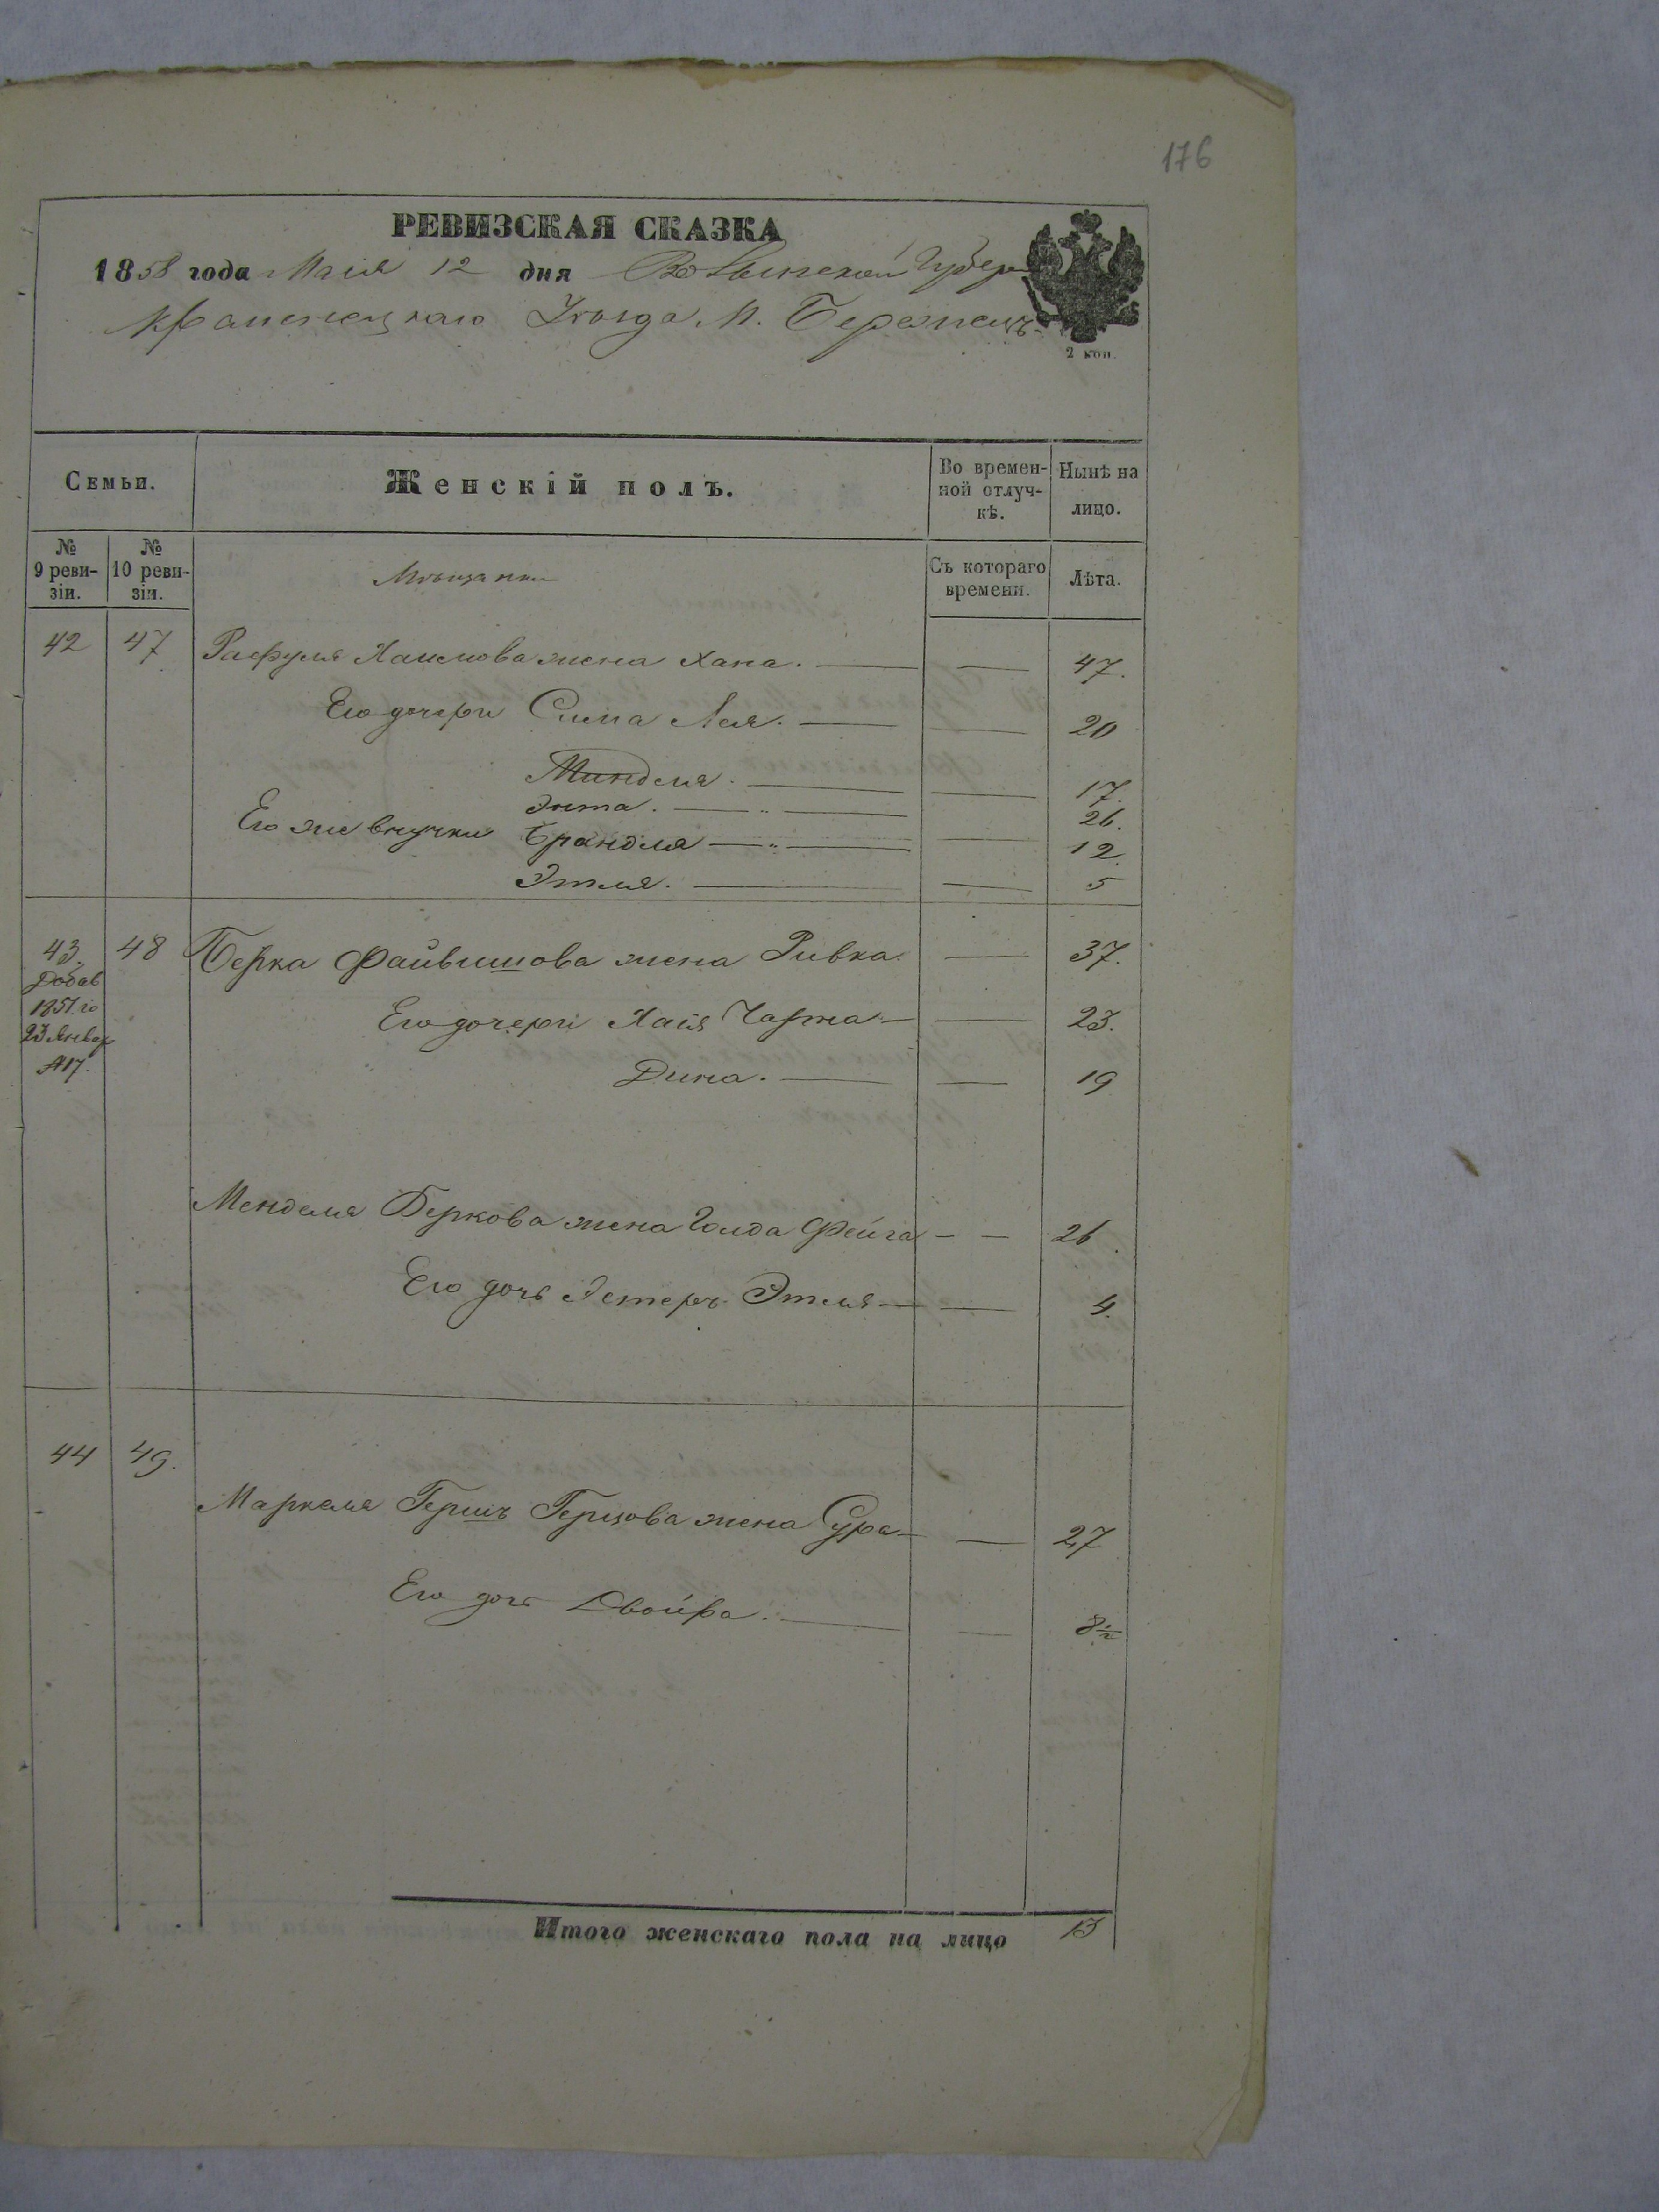 176
РЕВИЗСКАЯ СКАЗКА
1858 года Маія 12 дня Волынской Губерн
Кременецкаго Уѣзда М. Бережецъ
2 коп.
Семьи.
Женскій полъ.
Во времен-
ной отлуч-
кѣ.
Нынѣ на
лицо.
№
9 реви-
зіи.
№
10 реви-
зіи.
Мѣщанки
Съ котораго
времени.
Лѣта.
42 47 Рафуля Хаимова жена Хана. — — 47.
Его дочери Сима Лея. — — 20
Миндля. — — 17.
Энта. — " — 26.
Его же внучки Брандля — " — — 12.
Этля. — — 5
43. 48 Берка Файвишова жена Ривка. — 37.
Добав
1851 го
23 Январ
№17.
Его дочери Хаия Чарна — — 23.
Дина. — — 19
Менделя Беркова жена Голда Фейга — — 26.
Его дочь Эстеръ Этля — — 4.
44 49.
Маркеля Гершъ Герцова жена Сура — — 27
Его дочь Двойра. — — 8½
Итого женскаго пола на лицо 13